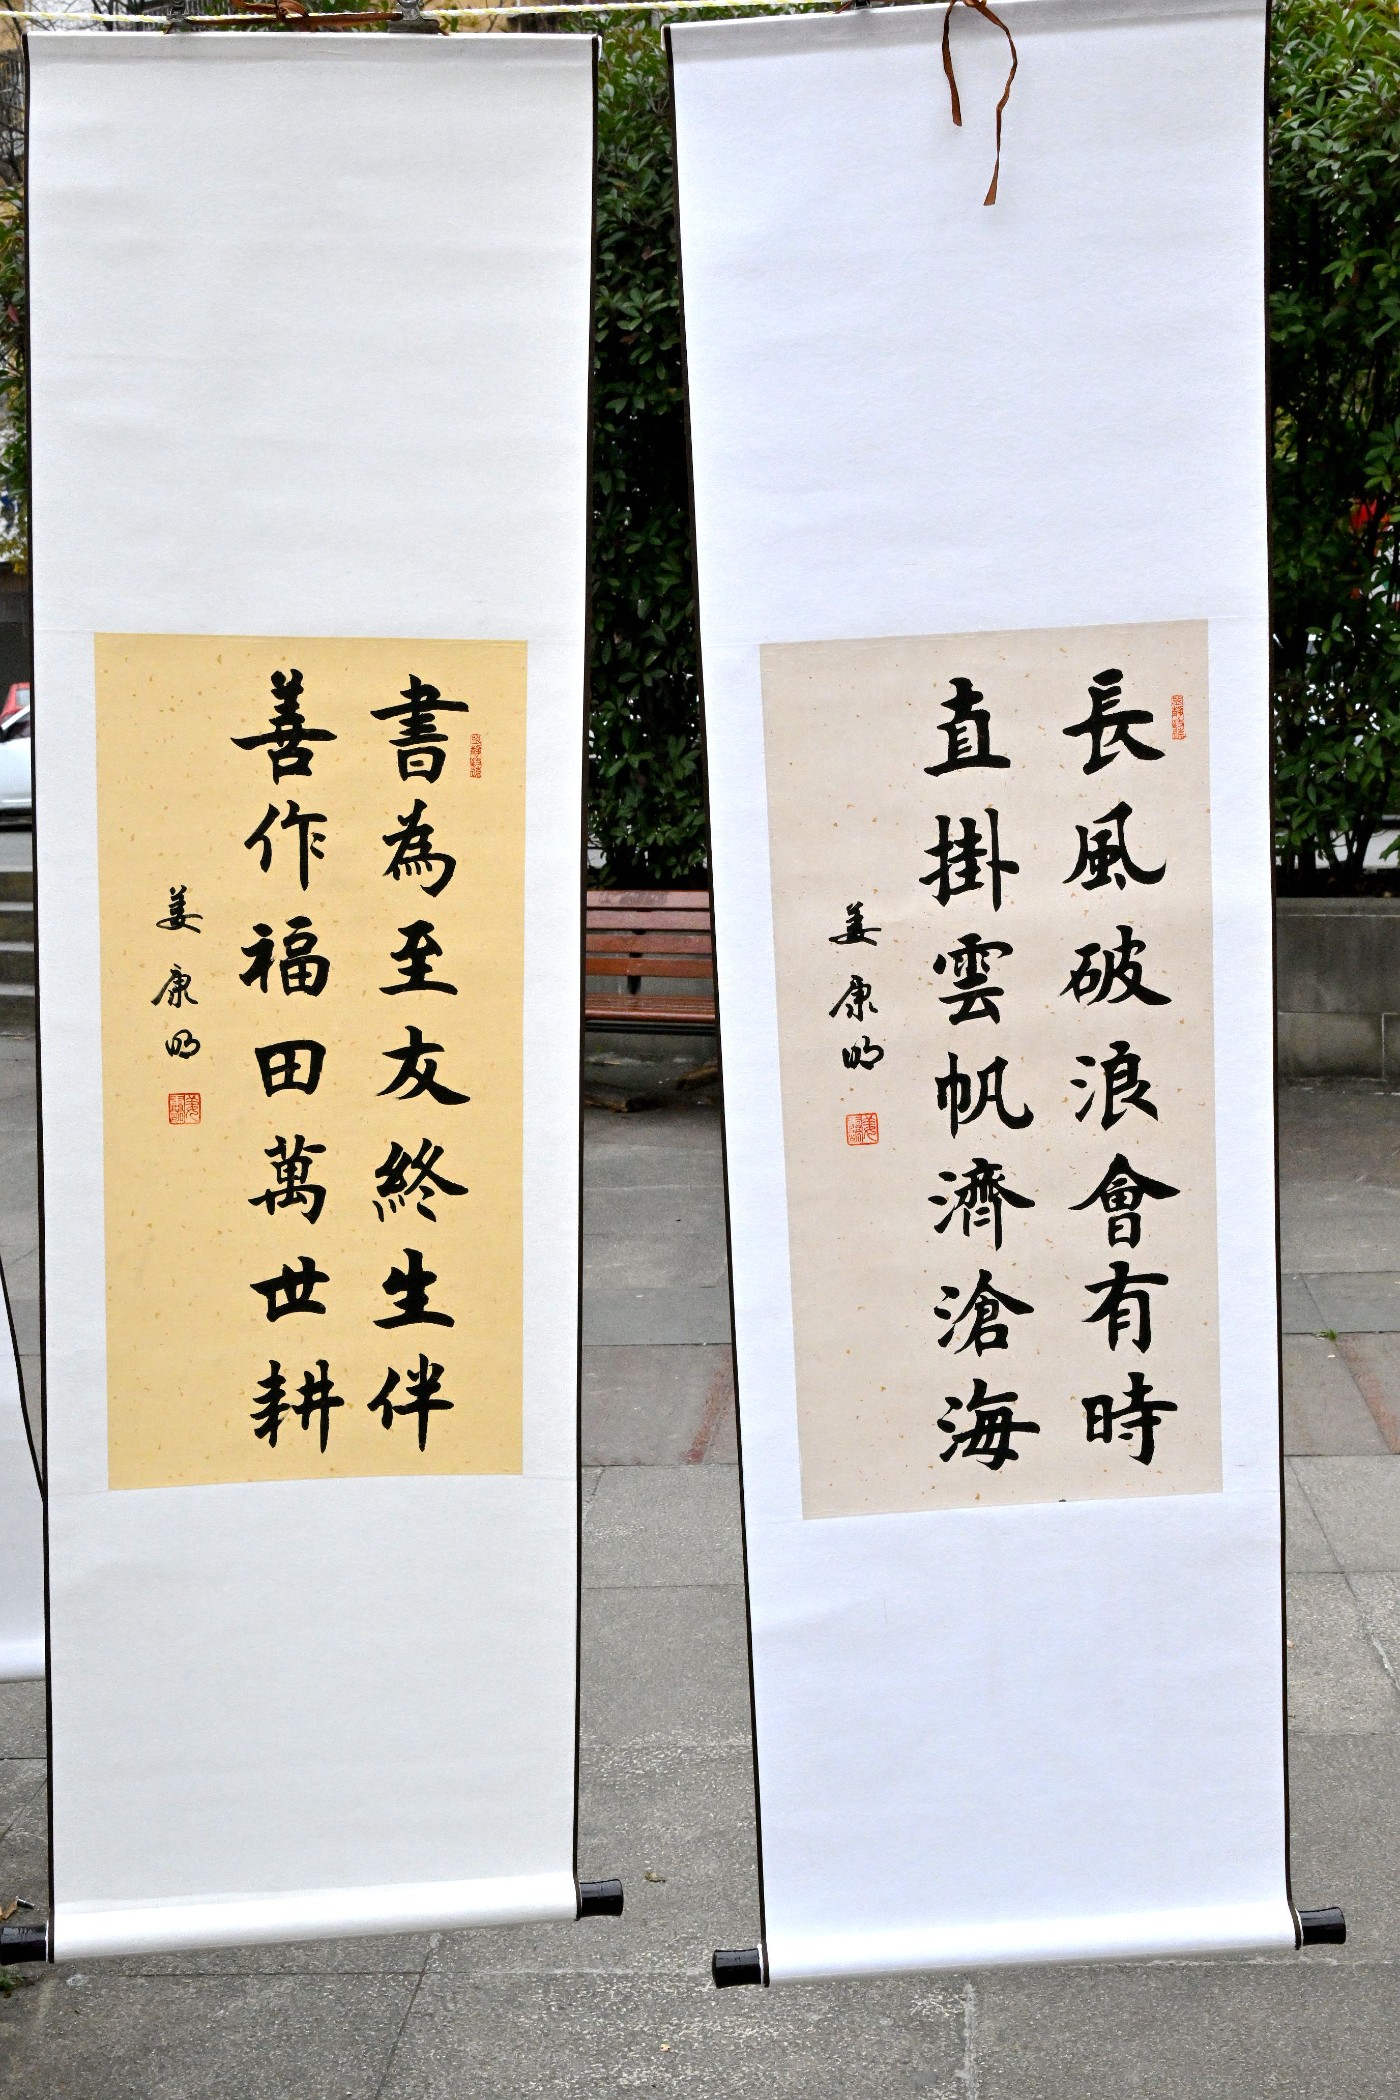 長風破浪會有時
直掛雲帆濟滄海
姜康明
書為至友終生伴
善作福田萬世耕
姜康明